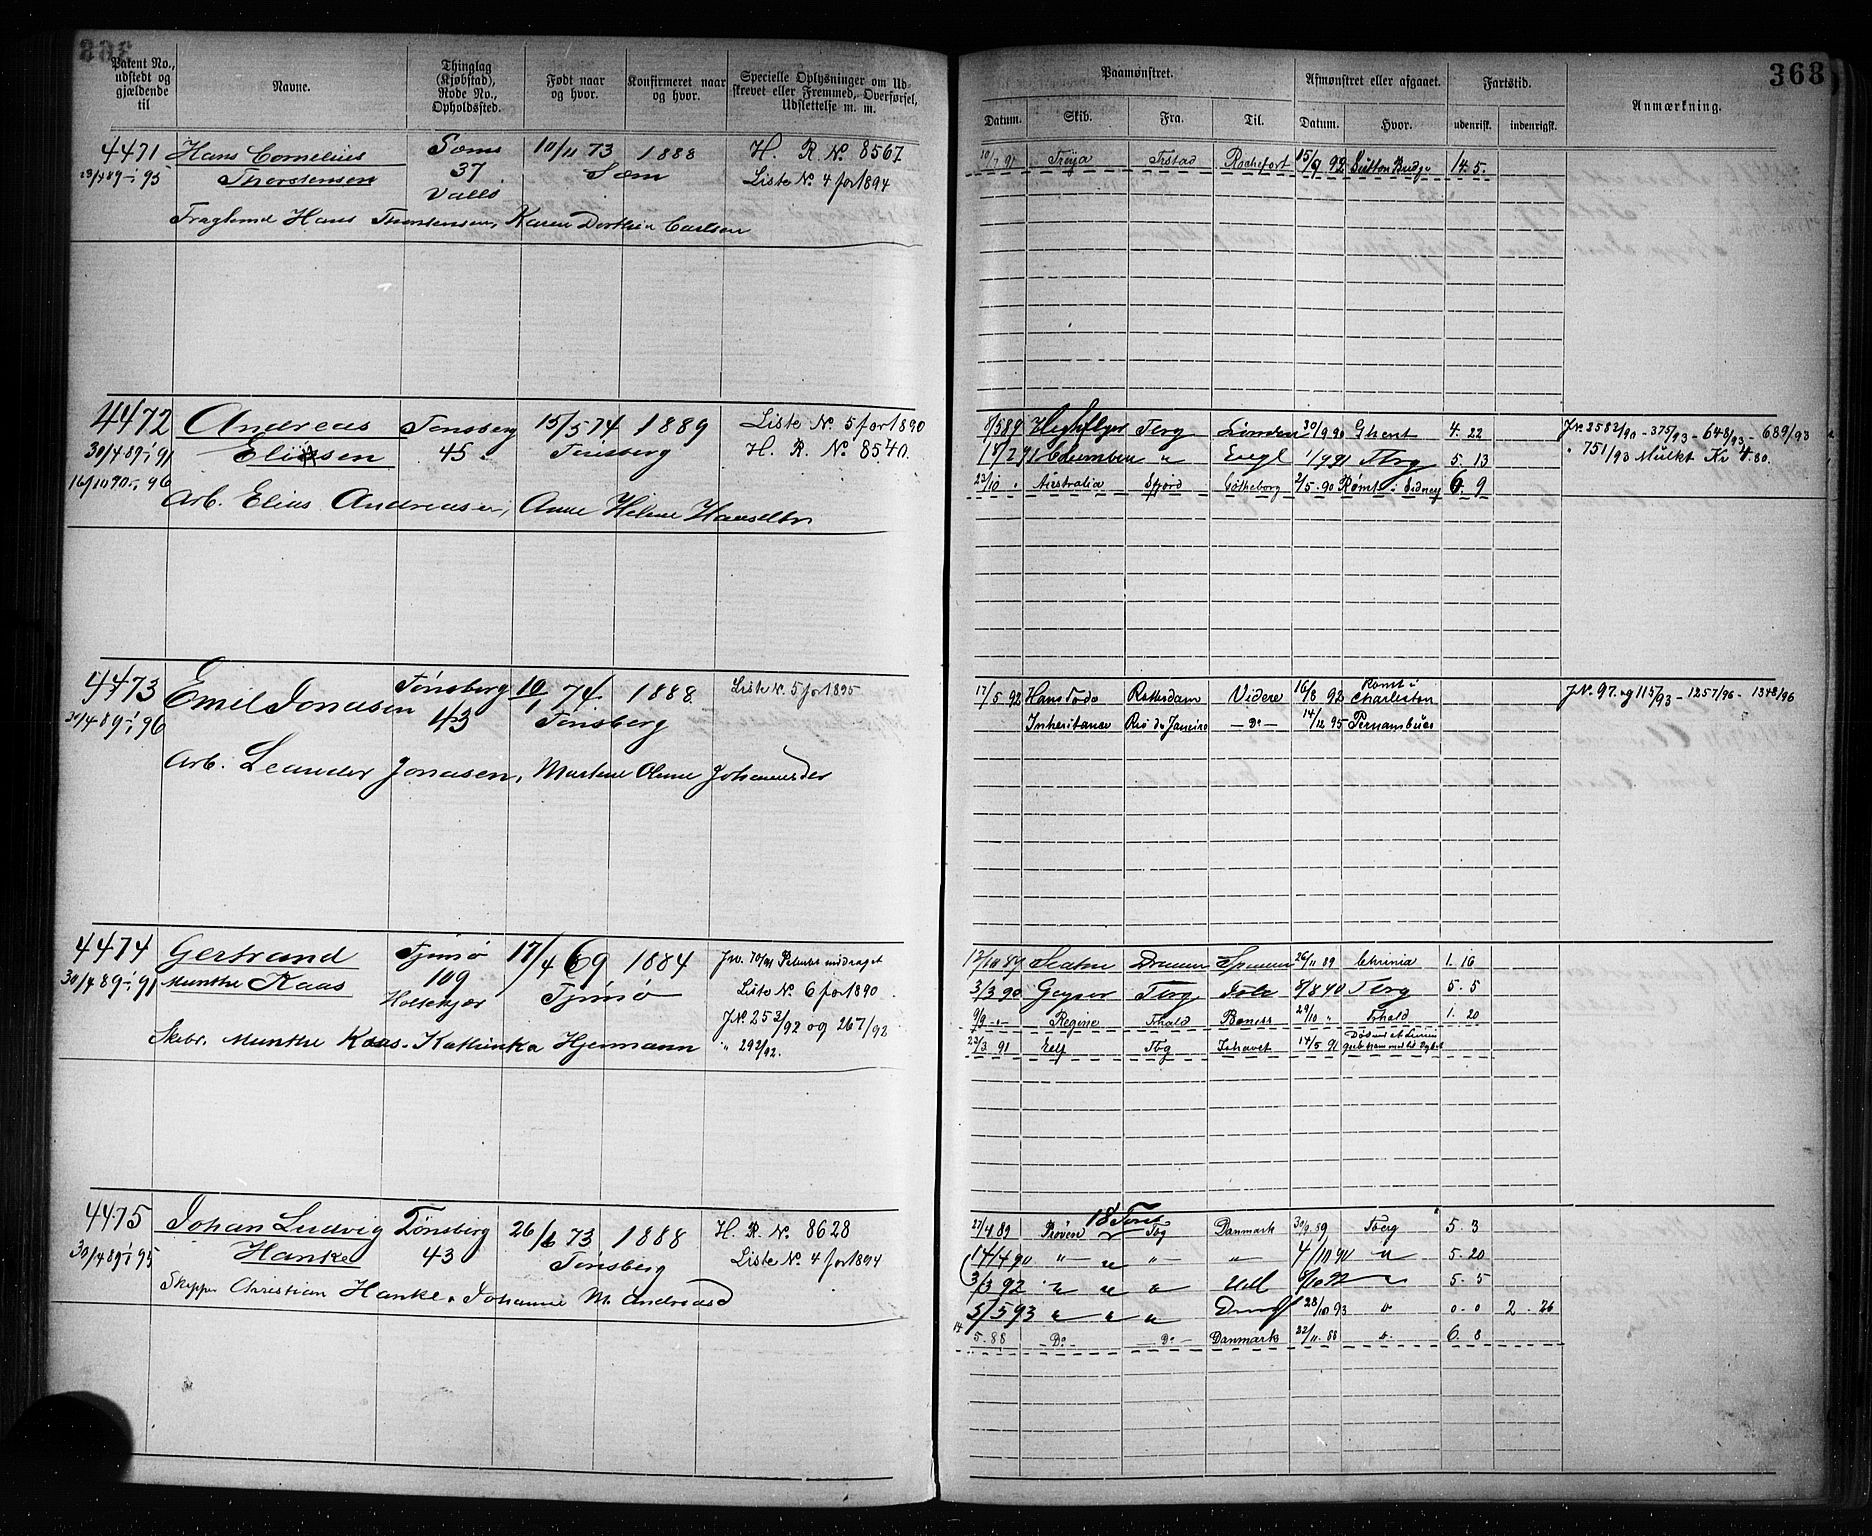 368
Patent No., udstedt og gjældende til
Navne.
Thinglag (Kjøbstad), Rode No., Opholdssted.
Født naar og hvor.
Konfirmeret naar og hvor.
Specielle Oplysninger om Udskrevet eller Fremmed, Overførsel, Udslettelse m. m.
Paamønstret.
Afmønstret eller afgaaet.
Fartstid.
Anmærkning.
Datum. Skib. Fra. Til. Datum. Hvor. udenrigsk. indenrigsk.
4471 Hans Cornelius Sæms 10/11 73 1888 H. R. No. 8567
23/4 89 - 1/1 95 Thorstensen 37 Sæm Liste No. 4 for 1894
Valls
Hans Thorstensen, Karen Dorthea Carlsen
10/7 91 Trøja Frstad Rochefort 15/9 92 Sutton Bridge 14. 5.
4472 Andreas Tønsberg 15/5 74 1889 Liste No. 5 for 1890
30/4 89 - 1/1 91 Eliasen 45. Tønsberg H. R. No. 8540.
16/10 90 - 96
Arb. Elias Andreasen, Anne Helene Hansdtr
8/5 89 Highflyer Tbrg London 30/9 90 Ghent 4. 22
18/2 91 " 1/9 91 Tbrg 5. 13
23/10 " Australia Sfjord Gøtheborg 2/5 90 Rømt i Sidney 6. 9
J.No. 2582/90 - 375/93 - 648/93 - 689/93
" 751/93 Mulkt Kr 4.80.
4473 Emil Jonasen Tønsberg 10/1 74 1888. Liste No. 5 for 1895
30/4 89 - 1/1 96 43 Tønsberg
Arb. Leander Jonasen, Martine Oline Johannesdtr
17/5 92 Hans Tode Rotterdam Videre 16/8 92 Rømt i Charleston
Inheritance Rio de Janeiro — Do — 14/12 95 Pernambuco
J.No. 97. og 115/93 - 1257/96 - 1348/96
4474 Gertrand Tjømø 17/4 69 1884 J.No. 70/91 Patent inddraget
30/4 89 - 1/1 91 Munthe Kaas 109 Tjømø Liste No. 6 for 1890
Holtekjær J.No. 253/92 og 267/92
Skibr. Munthe Kaas. Kathinka Hjermann " 292/92.
12/10 89 26/11 89 Chrinia 1. 16
3/3 90 Geyser Tbrg 8/8 90 Tbrg 5. 5
9/9 - - Regine Frhald Boness 29/10 " Frhald 1. 20
23/3 91 Tbg Ishavet 14/5 91
4475 Johan Ludvig Tønsberg 26/6 73 1888 H. R. No. 8628
30/4 89 - 1/1 95 Hanke 43 Tønsberg Liste No. 4 for 1894
Skipper Christian Hanke. Johanne M. Andreasd
27/4 89 Prøven 18 Tbg Danmark 30/9 89 Tberg 5. 3
14/4 90 " " " " 4/10 90 " 5. 20
3/3 92 " " " 8/10 92 " 5. 5
5/5 93 " " " 28/10 93 " 0. 0 2. 26
14/5. 88 Do — Do — Danmark 22/11. 88 " 6. 8